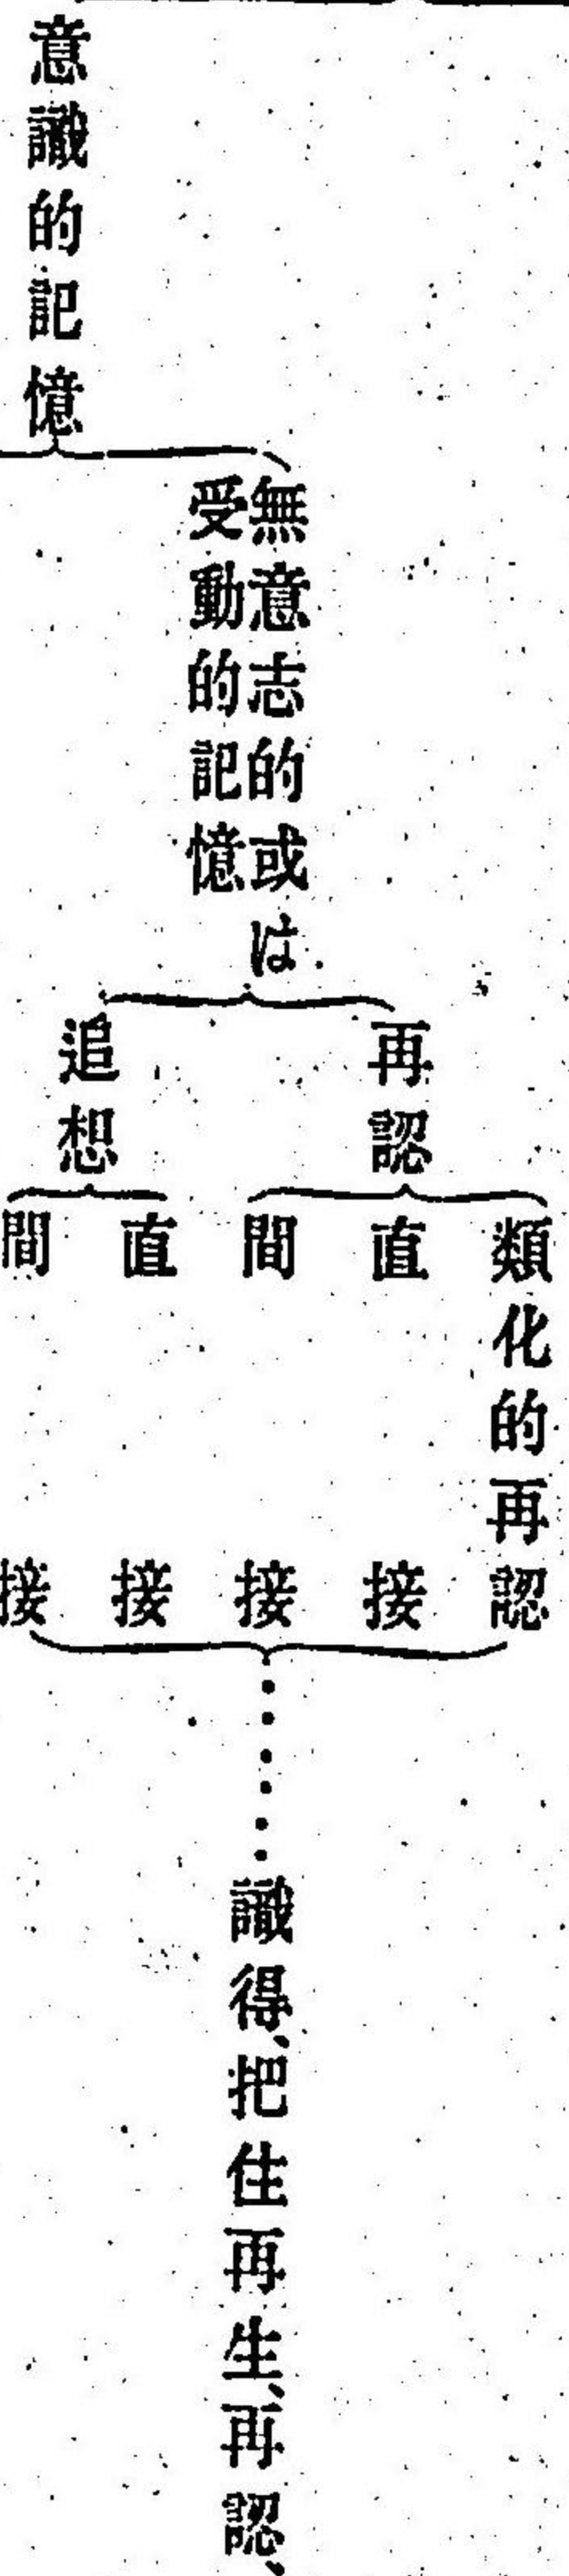 意識的記憶
無意志的或は
受動的記憶
再認
類化的再認
直接
間接
追想
直接
間接
……識得、把住再生、再認、